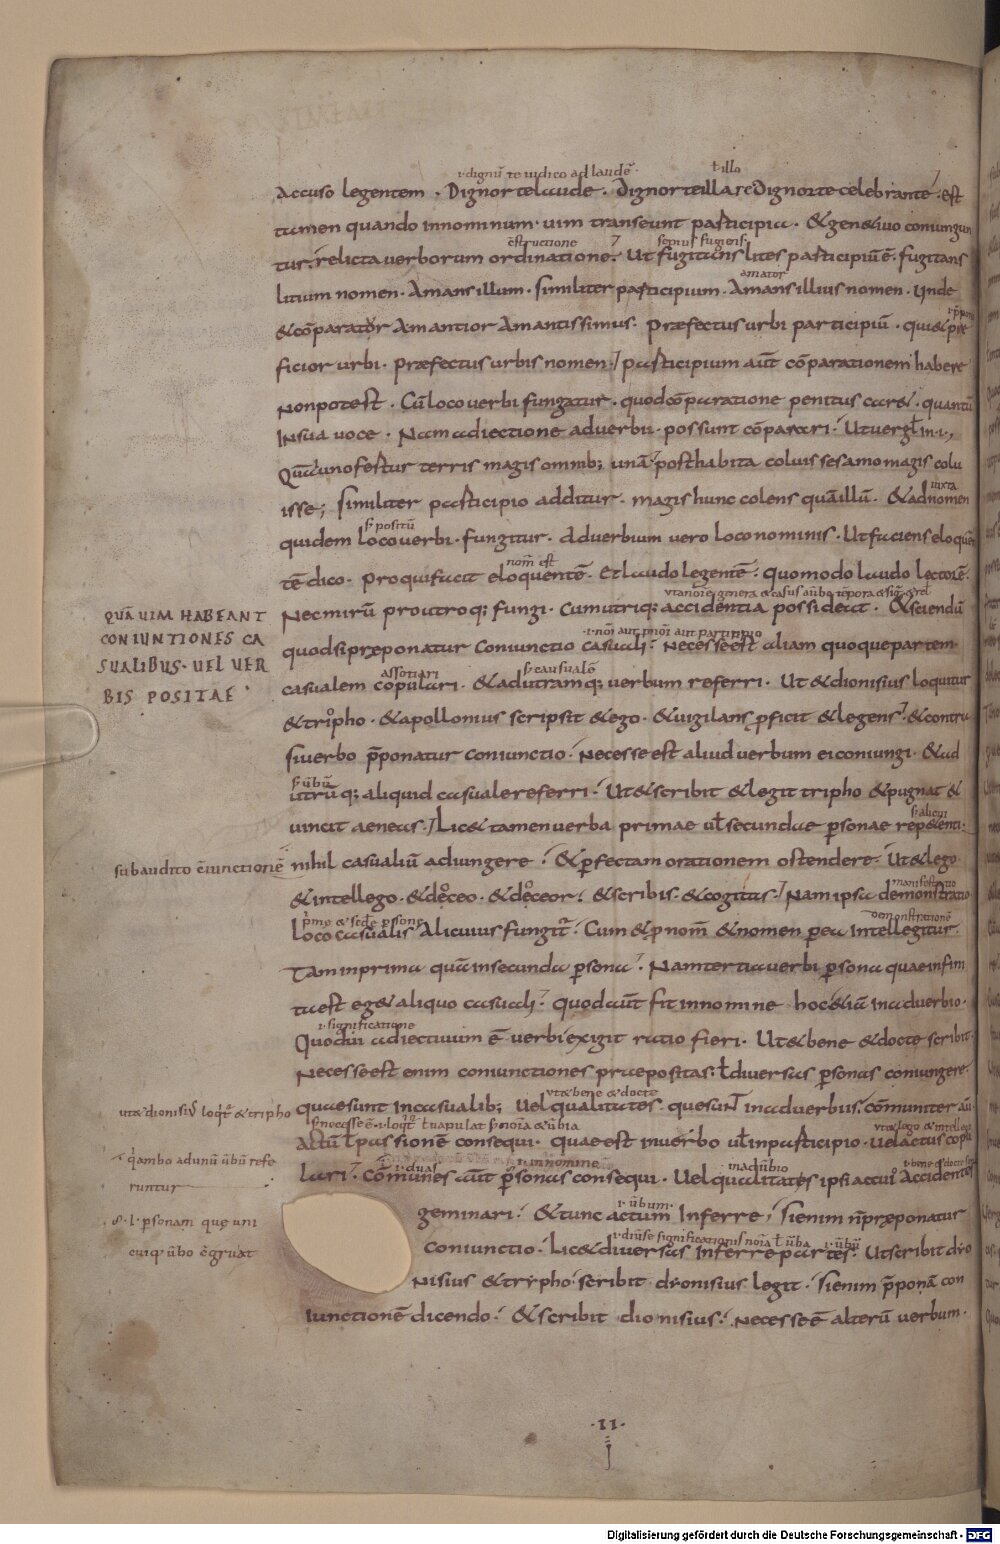 i dignū te iudico ad laudē · ł illo
Accuso legentem · Dignor te laude · Dignor te illa re Dignor te celebrante · Est
tamen quando in nominum · uim transeunt participia · & gen&iuo coniungun
ēstructione sepius fugiens
tur · relicta uerborum ordinatione · Ut fugitans lites participiū ē · fugitans
amator
litium nomen · Amans illum · similiter participium · Amans illius nomen · Unde
& cōparator Amantior Amantissimus · Praefectus urbi participiū · qui & prae
ficior urbi · Praefectus urbis nomen · participium aūt cōparationem habere
Non potest · Cū loco uerbi fungatur · quod cōparatione penitus car& · quantū
IN sua uoce · Nam adiectione aduerbii · possunt cōparari · Ut uergł in · i ·,
Quā iuno fertur terris magis omnib; unā · posthabita coluisse samo magis colu
iuxta
isse; similiter participio additur · magis hunc colens quā illū · & ad nomen
s̄ positū
quidem loco uerbi · fungitur · Aduerbium uero loco nominis · Ut faciens eloquen
nom̄ est
tē dico · Pro qui facit eloquentē · Et laudo legentē · quomodo laudo lectorē ·
Nec mirū pro utroq; fungi · Cum utriq; accidentia possideat · & sciendū
i · nōi aut pnōi aut participio
quod si praeponatur Coniunctio casuali · Necesse est aliam quoque partem
assotiari s̄ casualē
casualem copulari · & ad utramq; uerbum referri · Ut & dionisius loquitur
& tripho · & apollonius scripsit & ego · & uigilans p̄ficit & legens · & contra
si uerbo p̄ponatur coniunctio · Necesse est aliud uerbum ei coniungi · & ad
s̄ ūbū
utrūq; aliquid casuale referri · Ut & scribit & legit tripho & pugnat &
s̄ alicui
uincit aeneas · Lic& tamen uerba primae uł secundae p̄sonae repe&enti
nihil casualiū adiungere · & p̄fectam orationem ostendere · Ut & lego
manifestatio
& intellego · & doceo · & doceor · & scribis · & cogitas · Nam ipsa demonstratio
p̄me & scd̄e p̄sone demonstrationē
loco casualis Alicuius fungit̄ · Cum & p nom̄ & nomen p ea intellegitur
Tam in prima quā in secunda p̄sona · Nam tertia uerbi p̄sona quae infini
ta est eg& aliquo casuali · quod aūt fit in nomine hoc &iā in aduerbio ·
i · significatione
Quod ui adiectiuum ē uerbi exigit ratio fieri · Ut & bene & docte scribit
Necesse est enim coniunctiones praepositas · ł diuersas p̄sonas coniungere
ut & bene & docte
quae sunt in casualib; Uel qualitates · que sunt in aduerbiis · cōmuniter aū
Actū ł passionē consequi · quae est in uerbo uł in participio · Uel actus copu
i · duas in nomine in adūbio
lari · Cōmunes aūt p̄sonas consequi · Uel qualitates ipsi actui Accidentes
i · ūbum
geminari · & tunc actum Inferre; si enim n̄ praeponatur
i · diuīse significationis nōia ł ūba i · ūbū
Coniunctio · Lic& diuersas Inferre partes · Ut scribit dio
Nisius & trypho scribit dionisius legit · si enim p̄ponā con
iunctionē dicendo · & scribit dionisius · Necesse ē alterū uerbum ·
QUĀ UIM HABEANT
CONIUNTIONES CA
SUALIBUS · UEL UER
BIS POSITAE
subaudito c̄iunctionē
ut & dionisiȳ loqt̄ & tripho
q ambo ad unū ūbū refe
runtur
s · ł · p̄sonam que uni
cuiq; ūbo c̄gruat
·II·
Digitalisierung gefördert durch die Deutsche Forschungsgemeinschaft - DFG